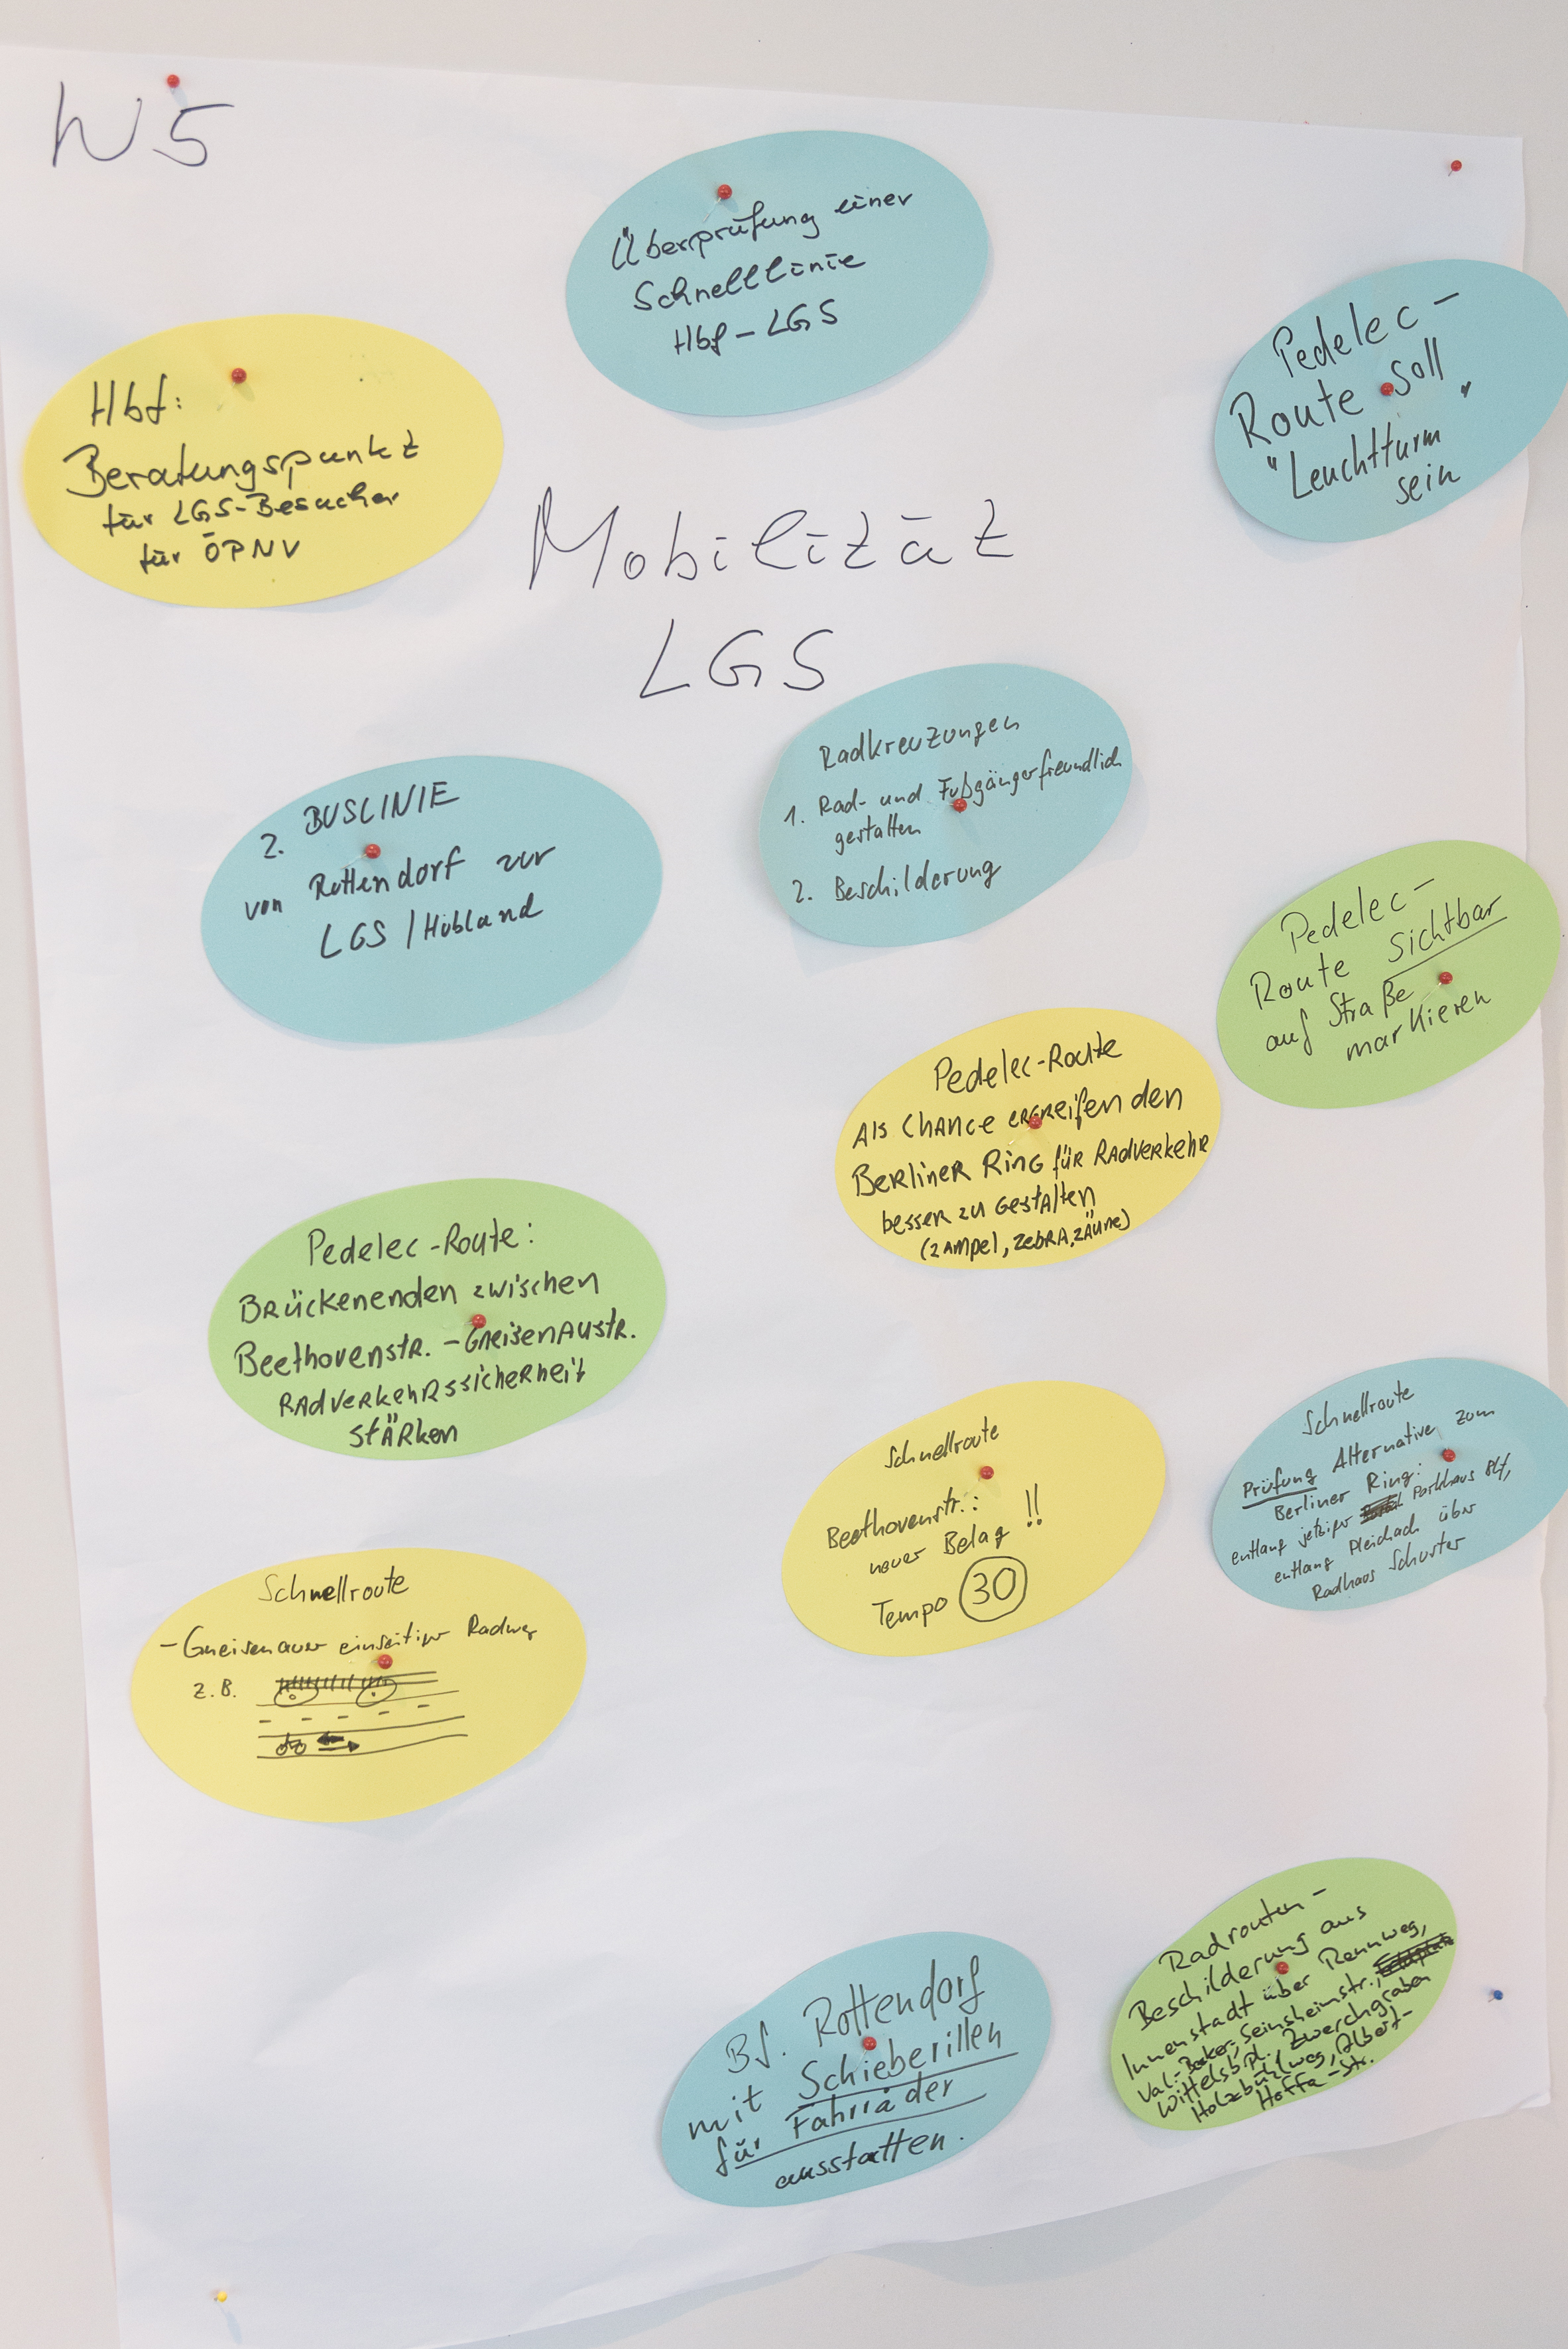 W5
Überprüfung einer
Schnelllinie
Hbf - LGS
Pedelec-
Route soll
"Leuchtturm"
sein
Hbf:
Beratungspunkt
für LGS-Besucher
für ÖPNV
Mobilität
LGS
Radkreuzungen
1. Rad- und Fußgängerfreundlich
gestalten
2. Beschilderung
2. BUSLINIE
von Rottendorf zur
LGS / Hubland
Pedelec-
Route sichtbar
auf Straße
markieren
Pedelec-Route
Als Chance ergreifen den
Berliner Ring für Radverkehr
besser zu gestalten
(2 Ampel, Zebra, Zäune)
Pedelec-Route:
Brückenenden zwischen
Beethovenstr. - Gneisenaustr.
Radverkehrssicherheit
stärken
Schnellroute
Beethovenstr.:
neuer Belag !!
Tempo 30
Schnellroute
Prüfung Alternative zum
Berliner Ring:
entlang jetziger Parkhaus
entlang Pleichach über
Radhaus Schuster
Schnellroute
- Gneisenauer einseitiger Radweg
z.B.
Radrouten-
Beschilderung aus
Innenstadt über Rennweg,
Val.-Becker-, Seinsheimstr.,
Wittelsb.Pl., Zwerchgraben
Holzbühlweg, Albert-
Hoffa-Str.
Bf. Rottendorf
mit Schieberillen
für Fahrräder
ausstatten.